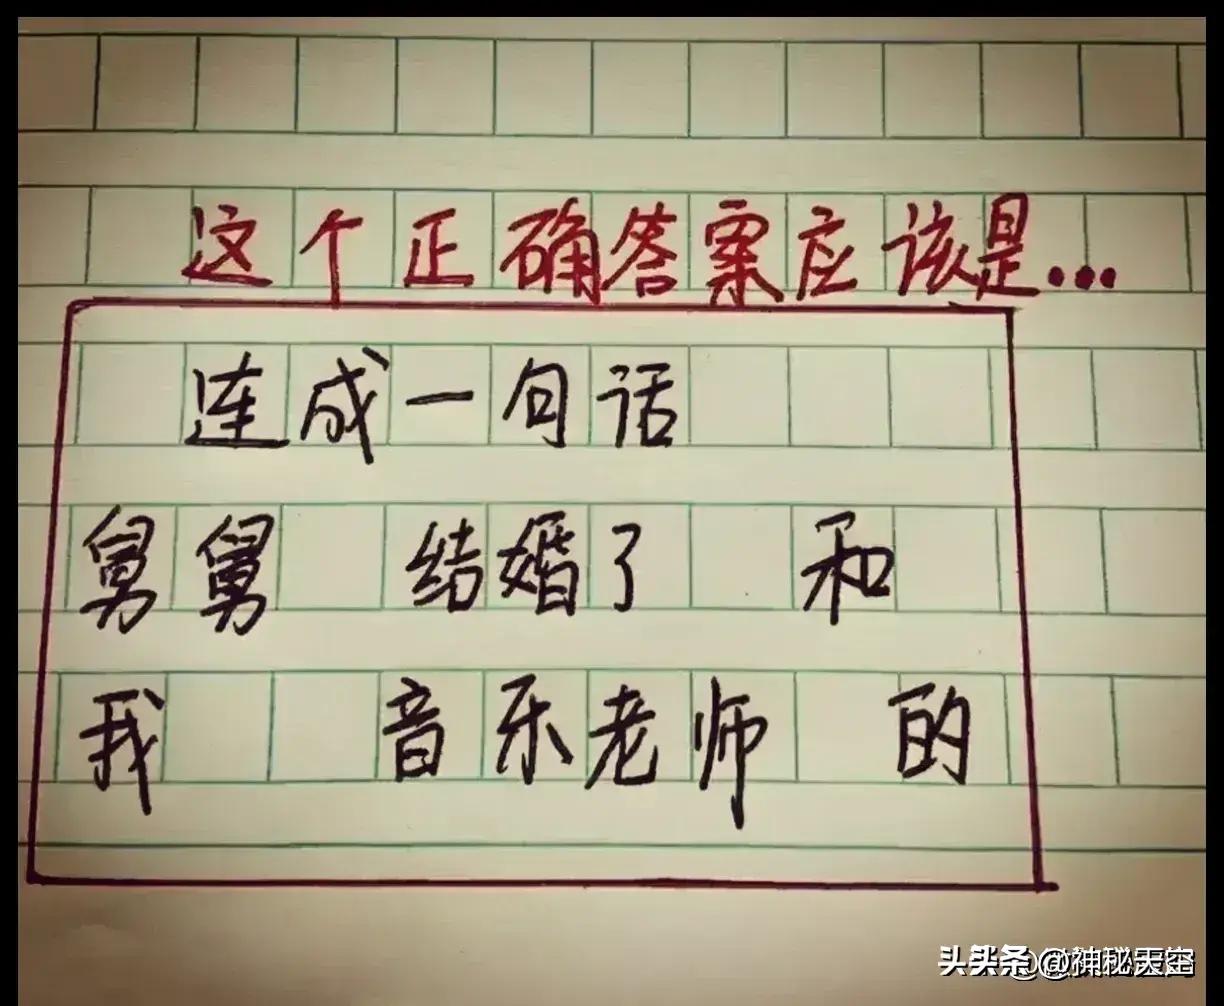 这个正确答案应该是...
连成一句话
舅舅 结婚了 和
我 音乐老师 的
头条 @神秘天空